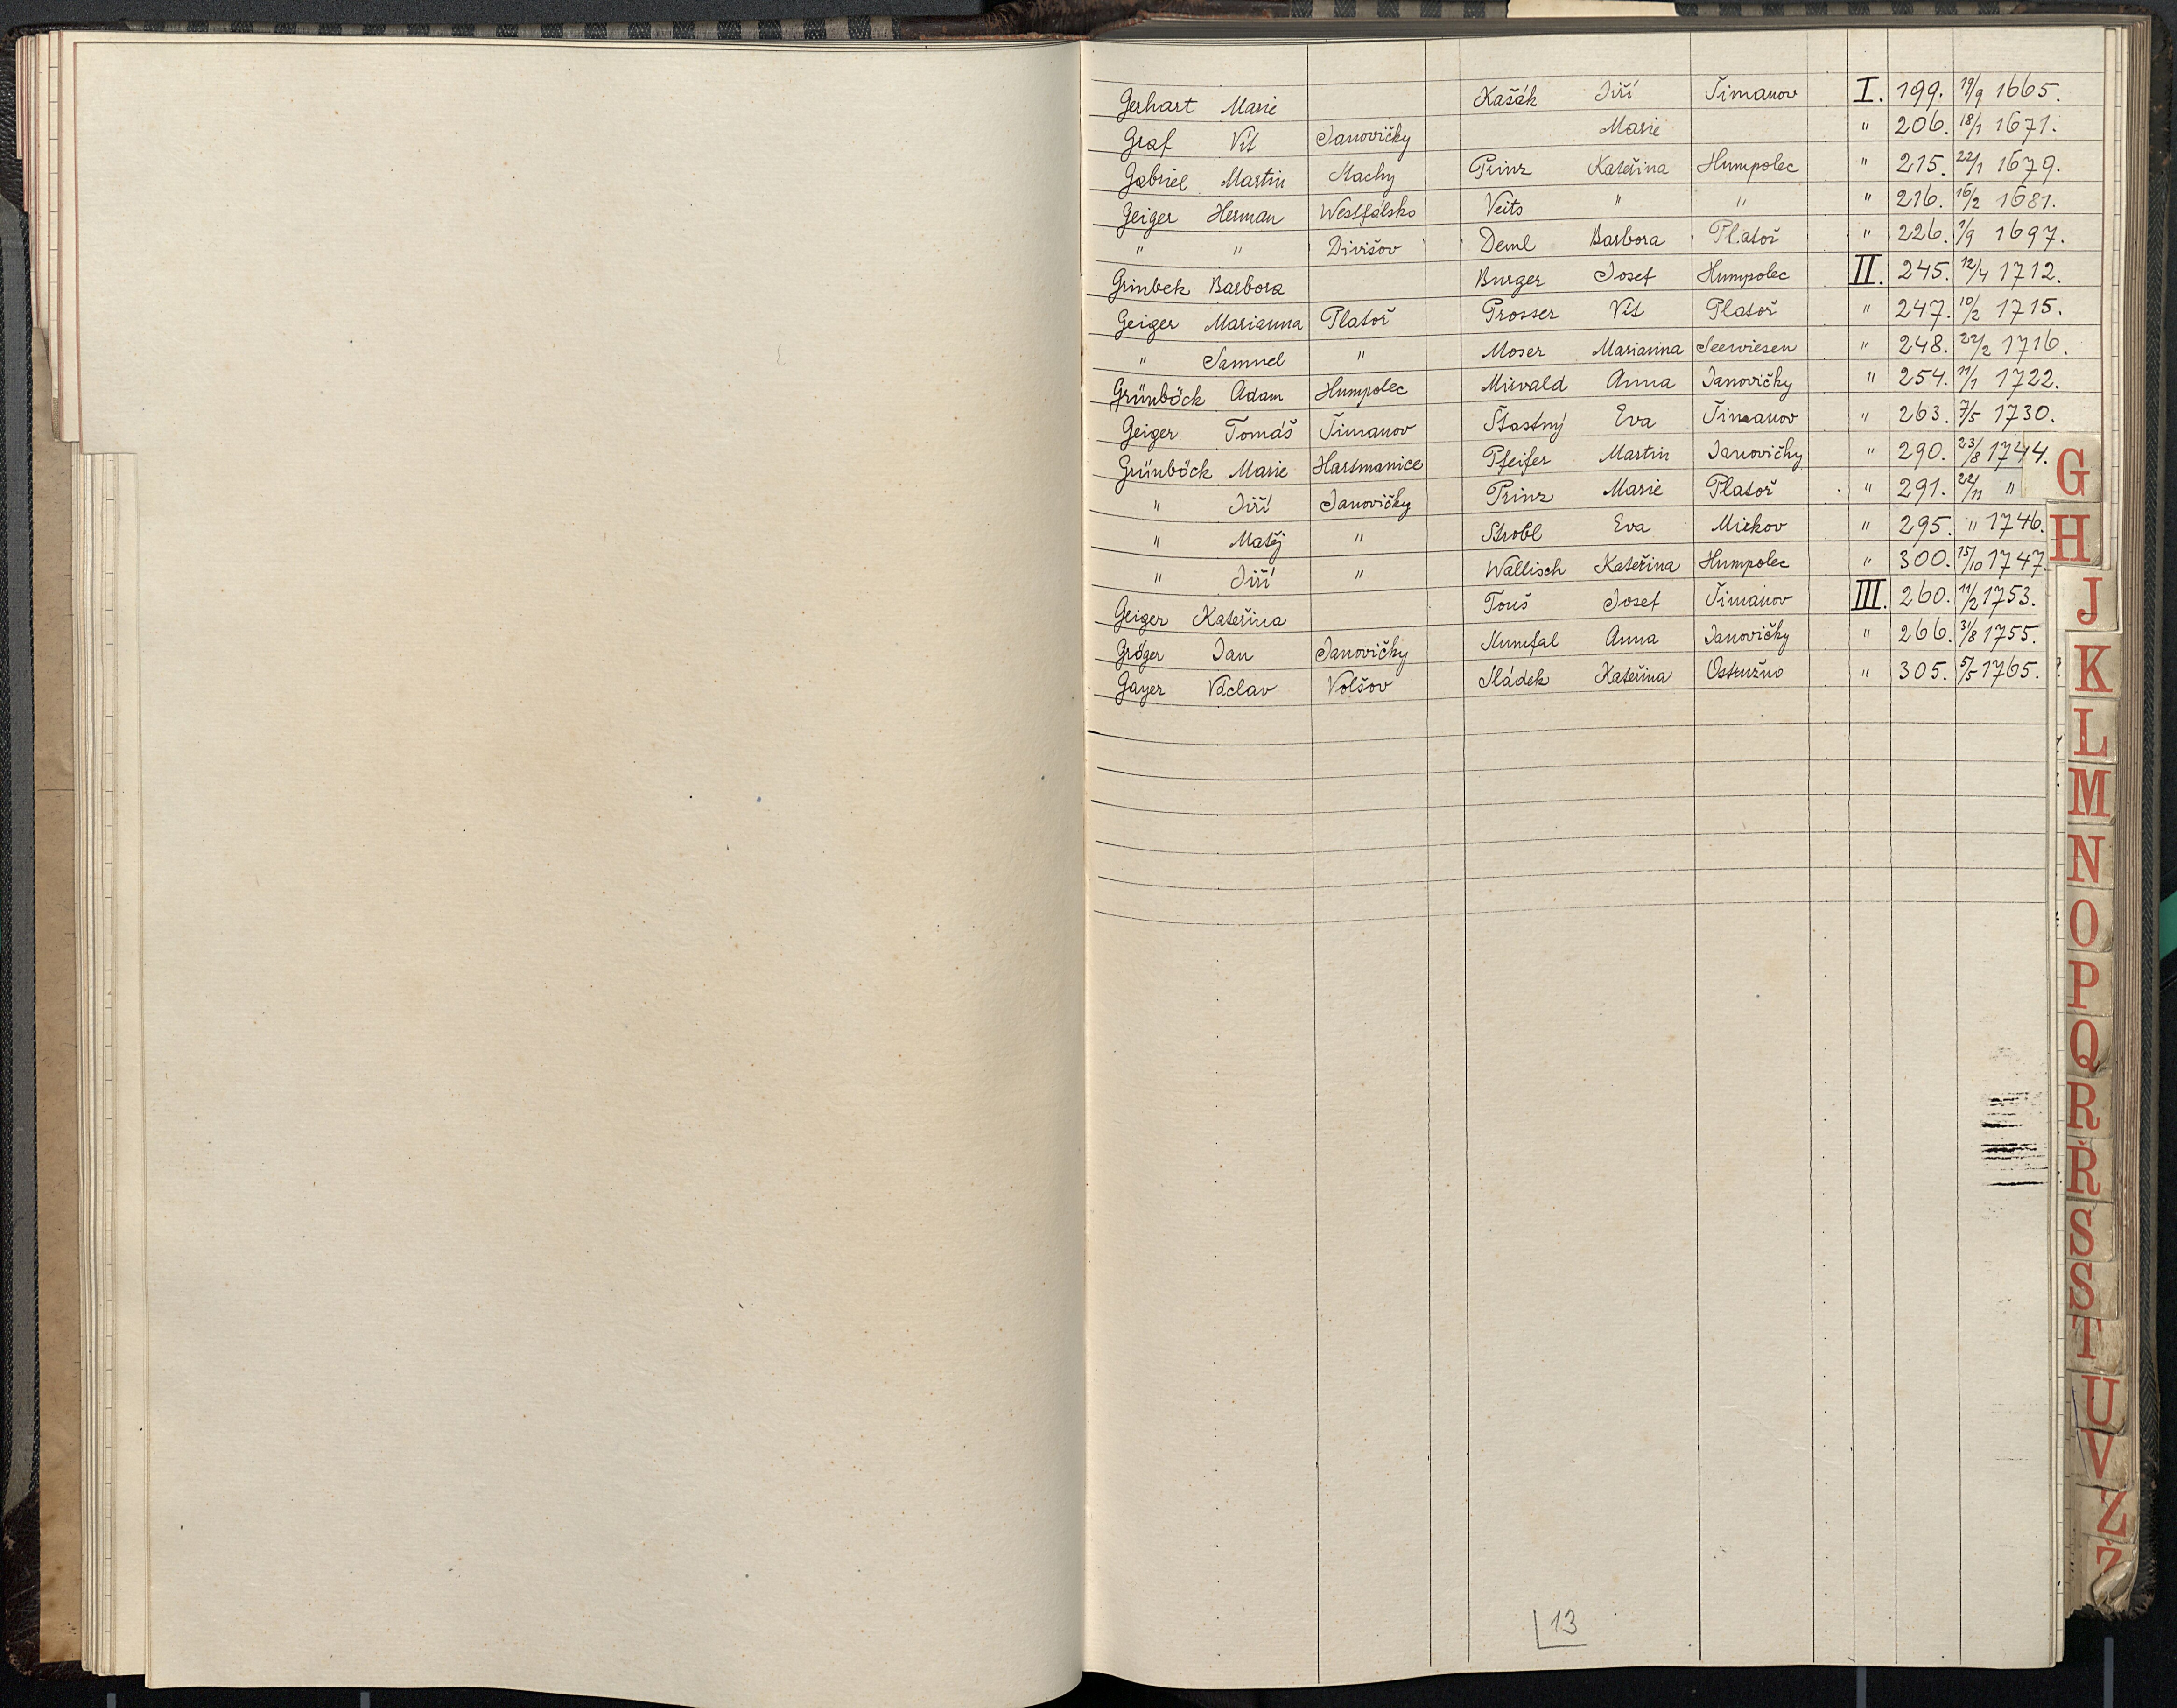 Gerhart Marie Kašák Jiří Šimanov I. 199. 19/9 1665.
Graf Vít Janovičky Marie " 206. 18/1 1671.
Gabriel Martin Stachy Prinz Kateřina Humpolec " 215. 22/1 1679.
Geiger Herman Westfálsko Veits " " " 216. 16/2 1681.
" " Divišov Deml Barbora Platoř " 226. 1/9 1697.
Grinbek Barbora Burger Josef Humpolec II. 245. 12/4 1712.
Geiger Marianna Platoř Prosser Vít Platoř " 247. 10/2 1715.
" Samuel " Moser Marianna Seewiesen " 248. 22/2 1716.
Grünböck Adam Humpolec Mirvald Anna Janovičky " 254. 11/1 1722.
Geiger Tomáš Šimanov Šťastný Eva Šimanov " 263. 7/5 1730.
Grünböck Marie Hartmanice Pfeifer Martin Janovičky " 290. 23/8 1744.
" Jiří Janovičky Prinz Marie Platoř " 291. 22/11 "
" Matěj " Strobl Eva Mirkov " 295. " 1746.
" Jiří " Wallisch Kateřina Humpolec " 300. 15/10 1747.
Geiger Kateřina Touš Josef Šimanov III. 260. 11/2 1753.
Gröger Jan Janovičky Numfal Anna Janovičky " 266. 31/8 1755.
Gayer Václav Volšov Sládek Kateřina Ostružno " 305. 5/5 1765.
13
G
H
J
K
L
M
N
O
P
Q
R
Ř
S
Š
T
U
V
Z
Ž